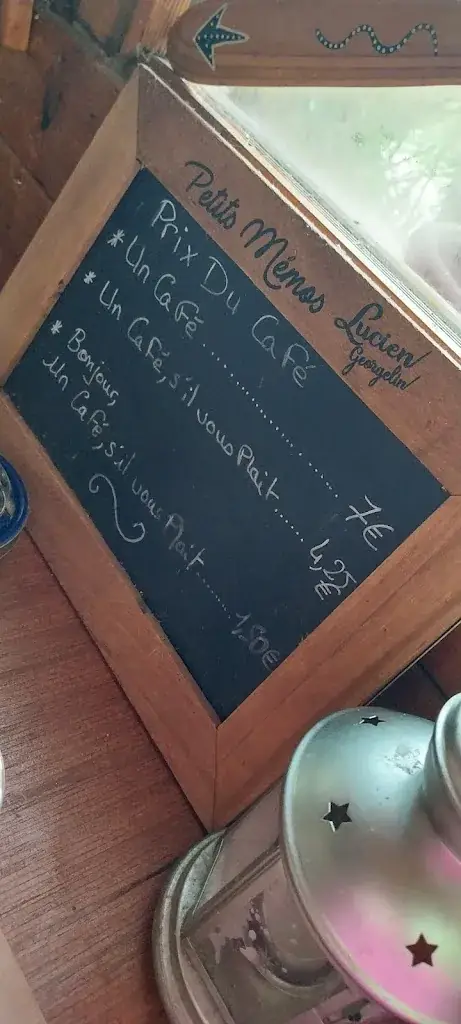 Petits Mémos Lucien
Georgelin
Prix Du Café
* Un Café.................. 7€
* Un Café, s'il vous Plait....... 4,25
€
* Bonjour,
Un Café, s'il vous Plait....... 1,80€